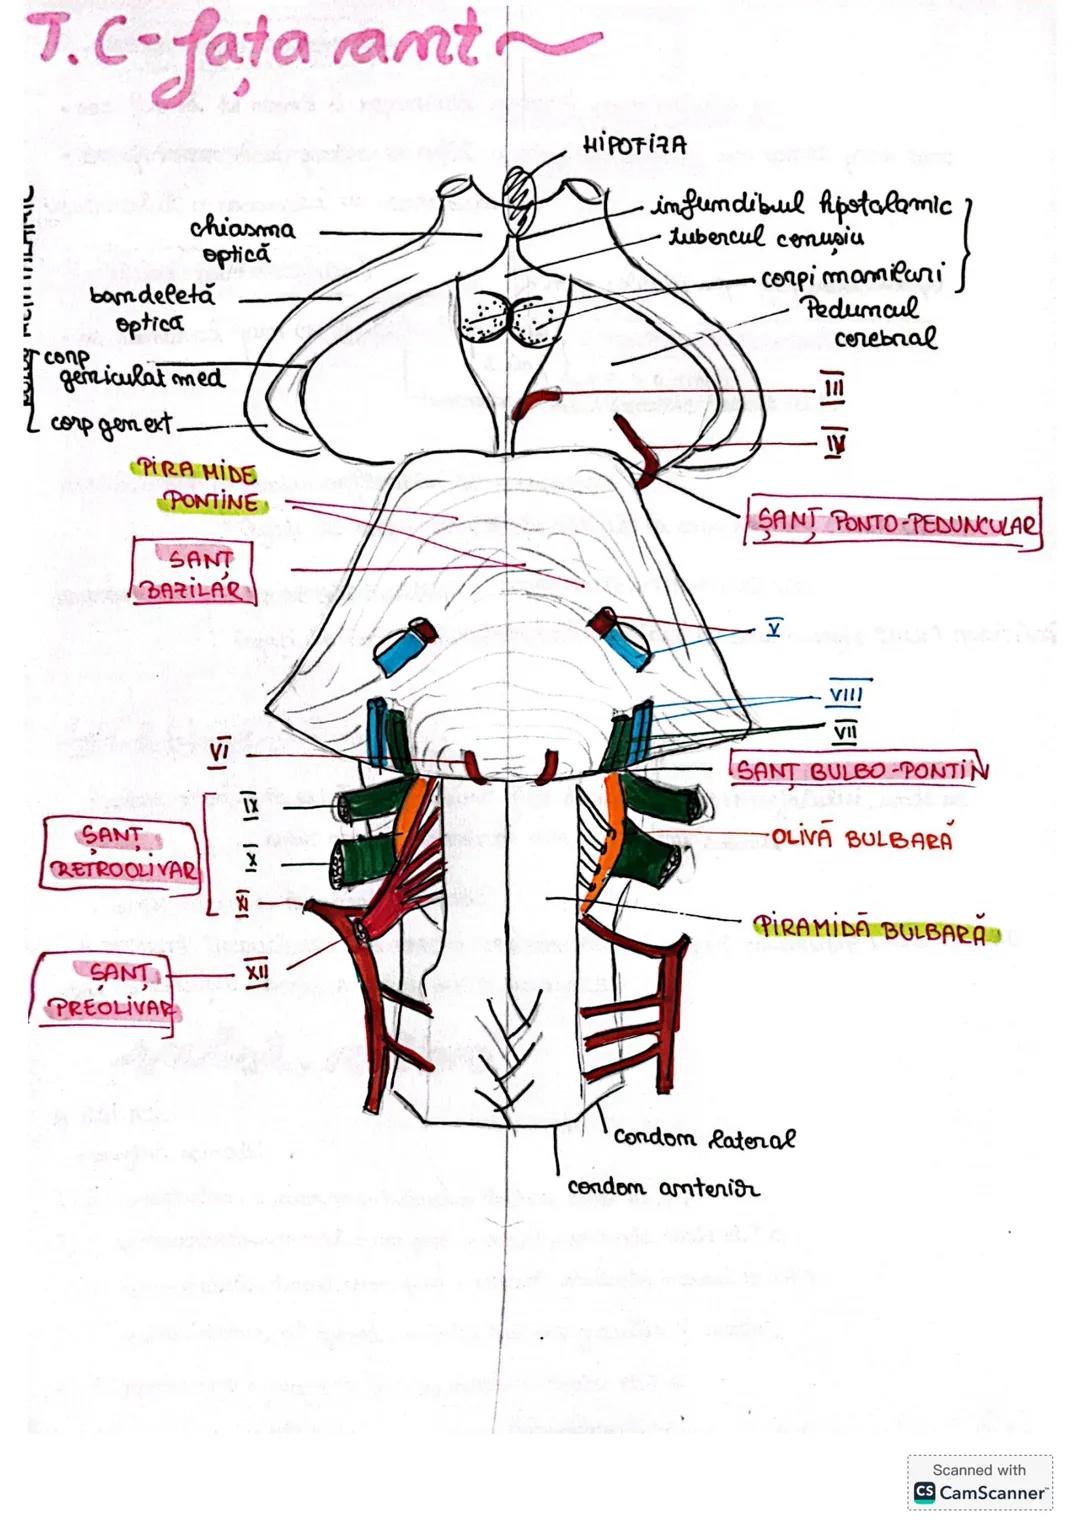 T.C-fața ant
HIPOFIZA
infundibul hipotalamic
tubercul cenușiu
corpi mamilari
Peduncul
cerebral
chiasma
optică
bandeletă
optică
corp
geniculat med
corp gen ext
III
IV
PIRAMIDE
PONTINE
ȘANȚ PONTO-PEDUNCULAR
ȘANȚ
BAZILAR
V
VIII
VII
VI
ȘANȚ BULBO-PONTIN
IX
OLIVĂ BULBARĂ
ȘANȚ
RETROOLIVAR
X
XI
PIRAMIDĂ BULBARĂ
ȘANȚ
PREOLIVAR
XII
cordon lateral
cordon anterior
Scanned with
CS CamScanner